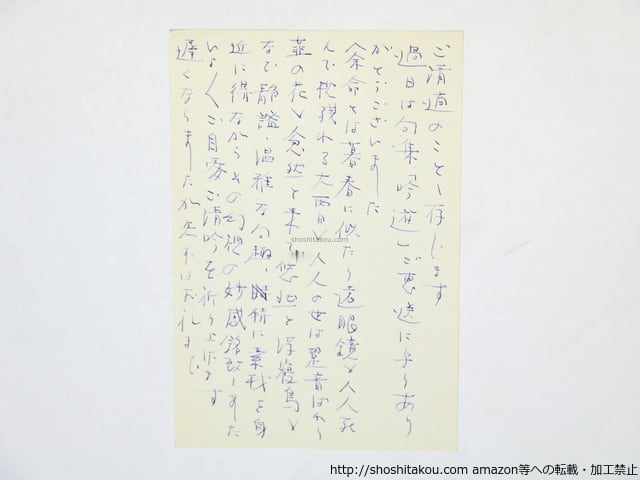 ご清適のことゝ存じます
過日は句集「吟遊」ご恵送に与りあり
がとうございました
〈余命とは暮春に似たり遠眼鏡〉〈人死
んで枕残れる大西日〉〈人の世は跫音ばかり
韮の花〉〈忽然と来て悠然と浮寝鳥〉
など静謐・温雅な句趣、
近に得ながらその幻視の妙感銘致しました
いよ〳〵ご自愛ご清吟を祈り上げます
遅くなりましたが先ずはお礼まで
shoshitakou.com
http://shoshitakou.com amazon等への転載・加工禁止